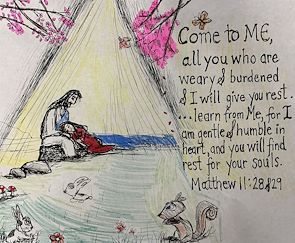 Come to ME,
all you who are
weary & burdened
& I will give you rest.
...learn from Me, for I
am gentle & humble in
heart, and you will find
rest for your souls.
Matthew 11:28&29